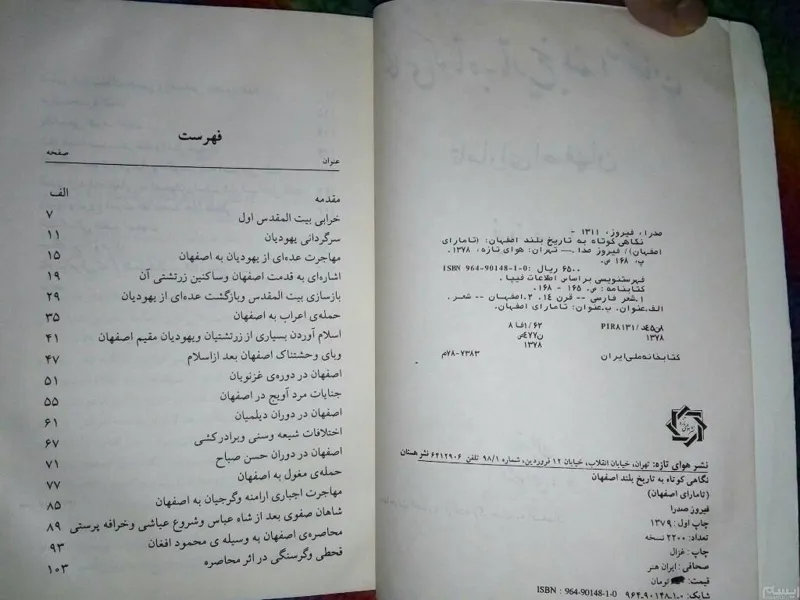 صدرا، فیروز، ۱۳۱۱ -
نگاهی کوتاه به تاریخ بلند اصفهان: (تامارای
اصفهان)/ فیروز صدرا.— تهران: هوای تازه، ۱۳۷۸.
۱۶۸ ص.
ISBN 964-90148-1-0: ۶۵۰۰ ریال
فهرستنویسی براساس اطلاعات فیپا.
کتابنامه: ص. ۱۶۵ - ۱۶۸.
۱.شعر فارسی -- قرن ۱۴. ۲.اصفهان -- شعر.
الف.عنوان. ب.عنوان: تامارای اصفهان.
۸فا۱/۶۲
PIR۸۱۳۱/
۱۳۷۸
۱۳۷۸
کتابخانه ملی ایران
۷۸-۷۳۸۳م
نشر هوای تازه: تهران، خیابان انقلاب، خیابان ۱۲ فروردین، شماره ۹۸/۱ تلفن ۶۴۱۲۹۰۶ نشر هستان
نگاهی کوتاه به تاریخ بلند اصفهان
(تامارای اصفهان)
فیروز صدرا
چاپ اول: ۱۳۷۹
تعداد: ۲۲۰۰ نسخه
چاپ: غزال
صحافی: ایران هنر
قیمت: تومان
شابک: ۰-۱-۹۰۱۴۸-۹۶۴ ISBN: 964-90148-1-0
فهرست
عنوان صفحه
مقدمه الف
خرابی بیت المقدس اول ۷
سرگردانی یهودیان ۱۱
مهاجرت عده‌ای از یهودیان به اصفهان ۱۵
اشاره‌ای به قدمت اصفهان وساکنین زرتشتی آن ۱۹
بازسازی بیت المقدس وبازگشت عده‌ای از یهودیان ۲۹
حمله‌ی اعراب به اصفهان ۳۵
اسلام آوردن بسیاری از زرتشتیان ویهودیان مقیم اصفهان ۴۱
وبای وحشتناک اصفهان بعد ازاسلام ۴۷
اصفهان در دوره‌ی غزنویان ۵۱
جنایات مرد آویج در اصفهان ۵۵
اصفهان در دوران دیلمیان ۶۱
اختلافات شیعه وسنی وبرادرکشی ۶۷
اصفهان در دوران حسن صباح ۷۱
حمله‌ی مغول به اصفهان ۷۷
مهاجرت اجباری ارامنه وگرجیان به اصفهان ۸۵
شاهان صفوی بعد از شاه عباس وشروع عیاشی وخرافه پرستی ۸۹
محاصره‌ی اصفهان به وسیله ی محمود افغان ۹۳
قحطی وگرسنگی در اثر محاصره ۱۰۳
ایسام